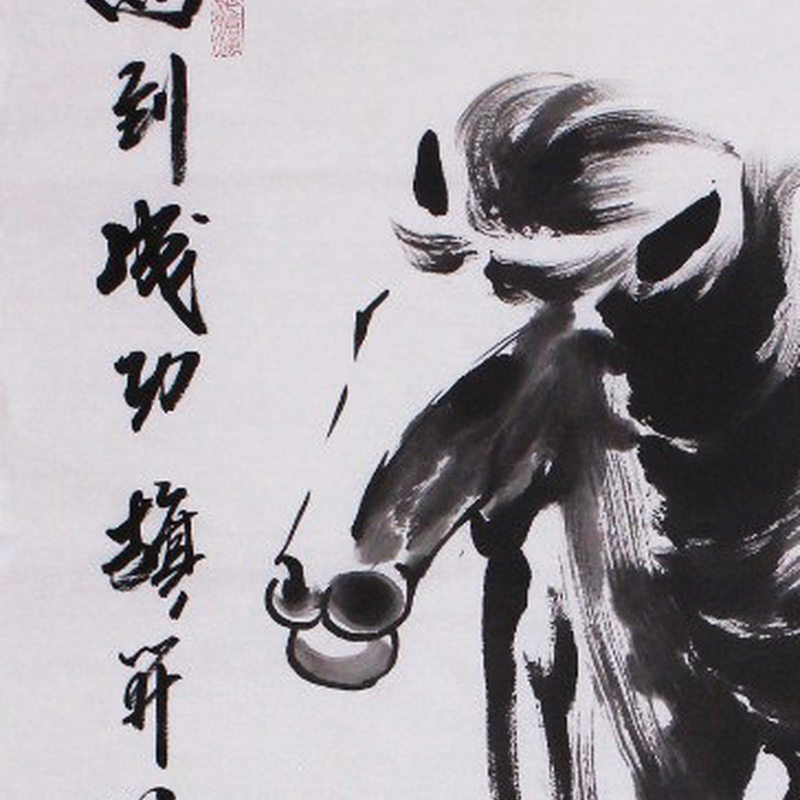 到成功旗开